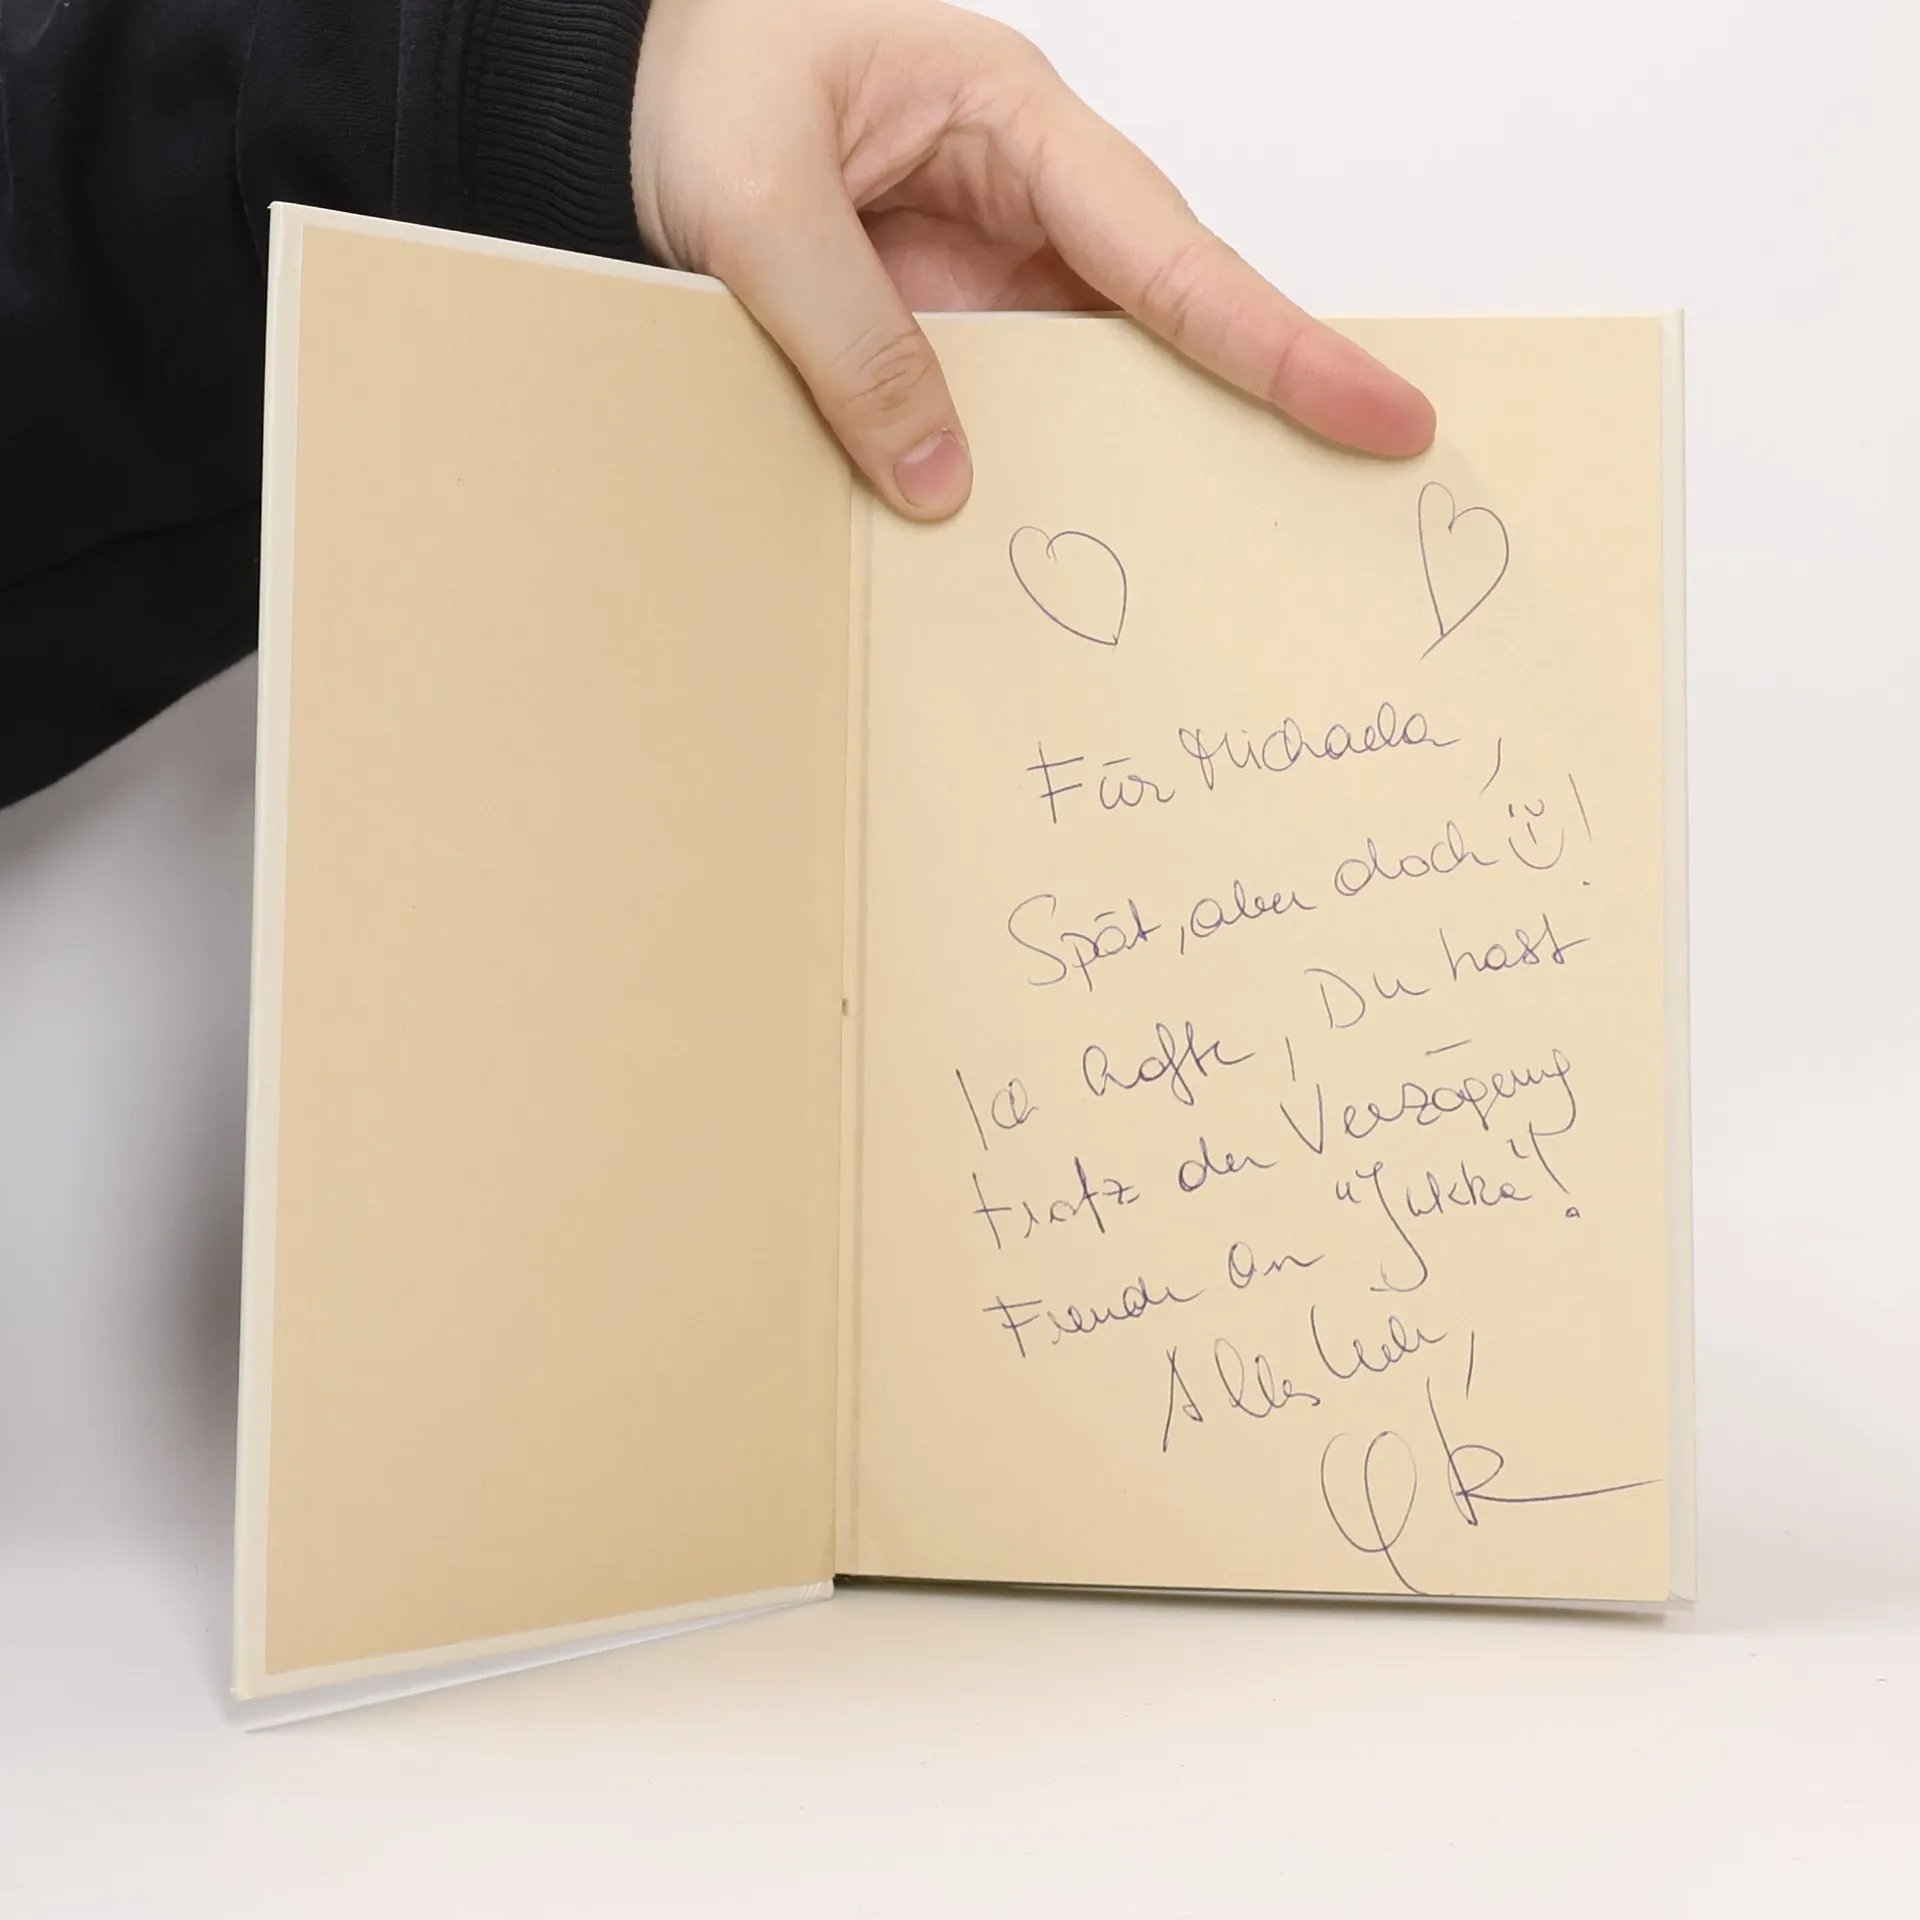 Für Michaela,
Spät, aber doch !
Ich hoffe, Du hast
trotz der Verzögerung
Freude an "Jukka"!
Alles Liebe,